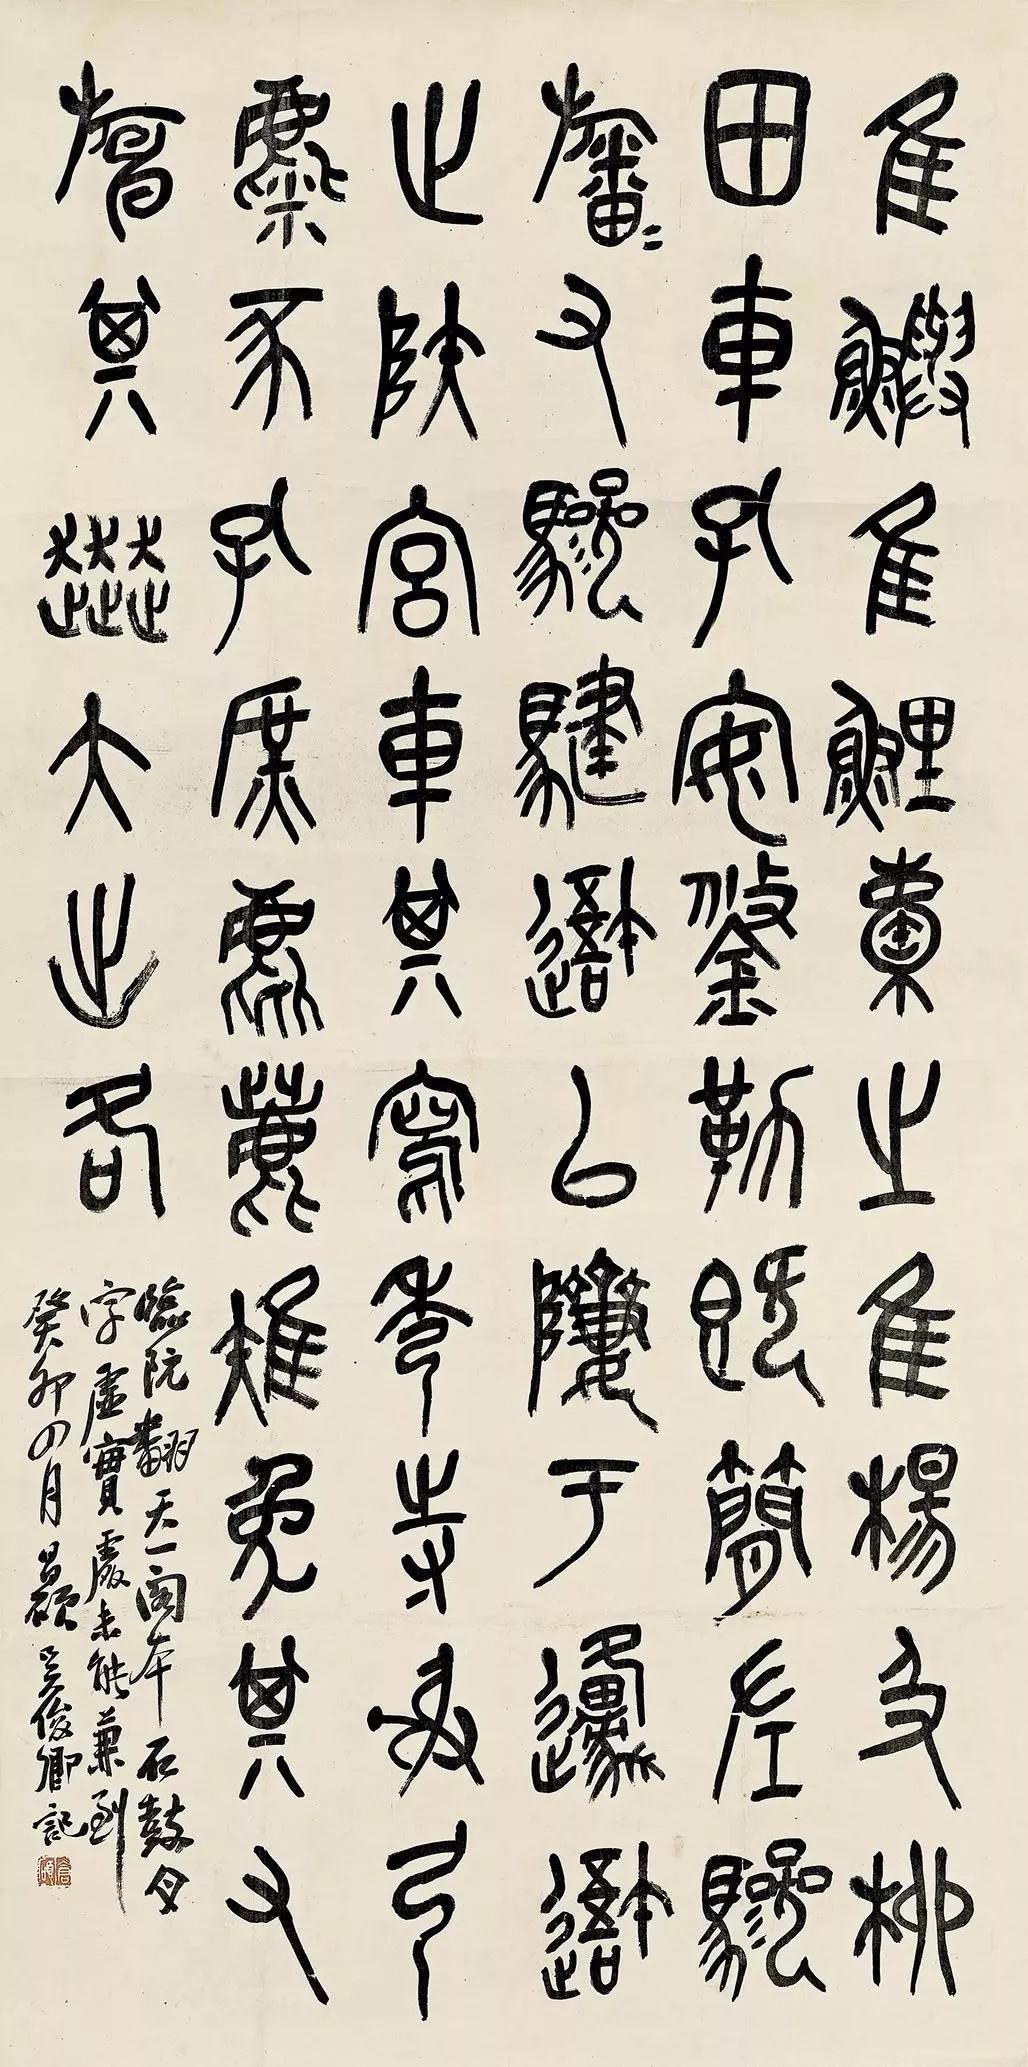 隹鱮隹鯉橐之隹楊及柳
田車孔安鋚勒既簡左驂
旛=又驂騝以隮于邍
止陝宮車其寫秀寺射弓
麋豕孔庶麀鹿雉兔其又
其大出各
臨阮翻天一閣本石鼓文
字虛實處未能兼到
癸卯四月昌碩吳俊卿記
倉碩